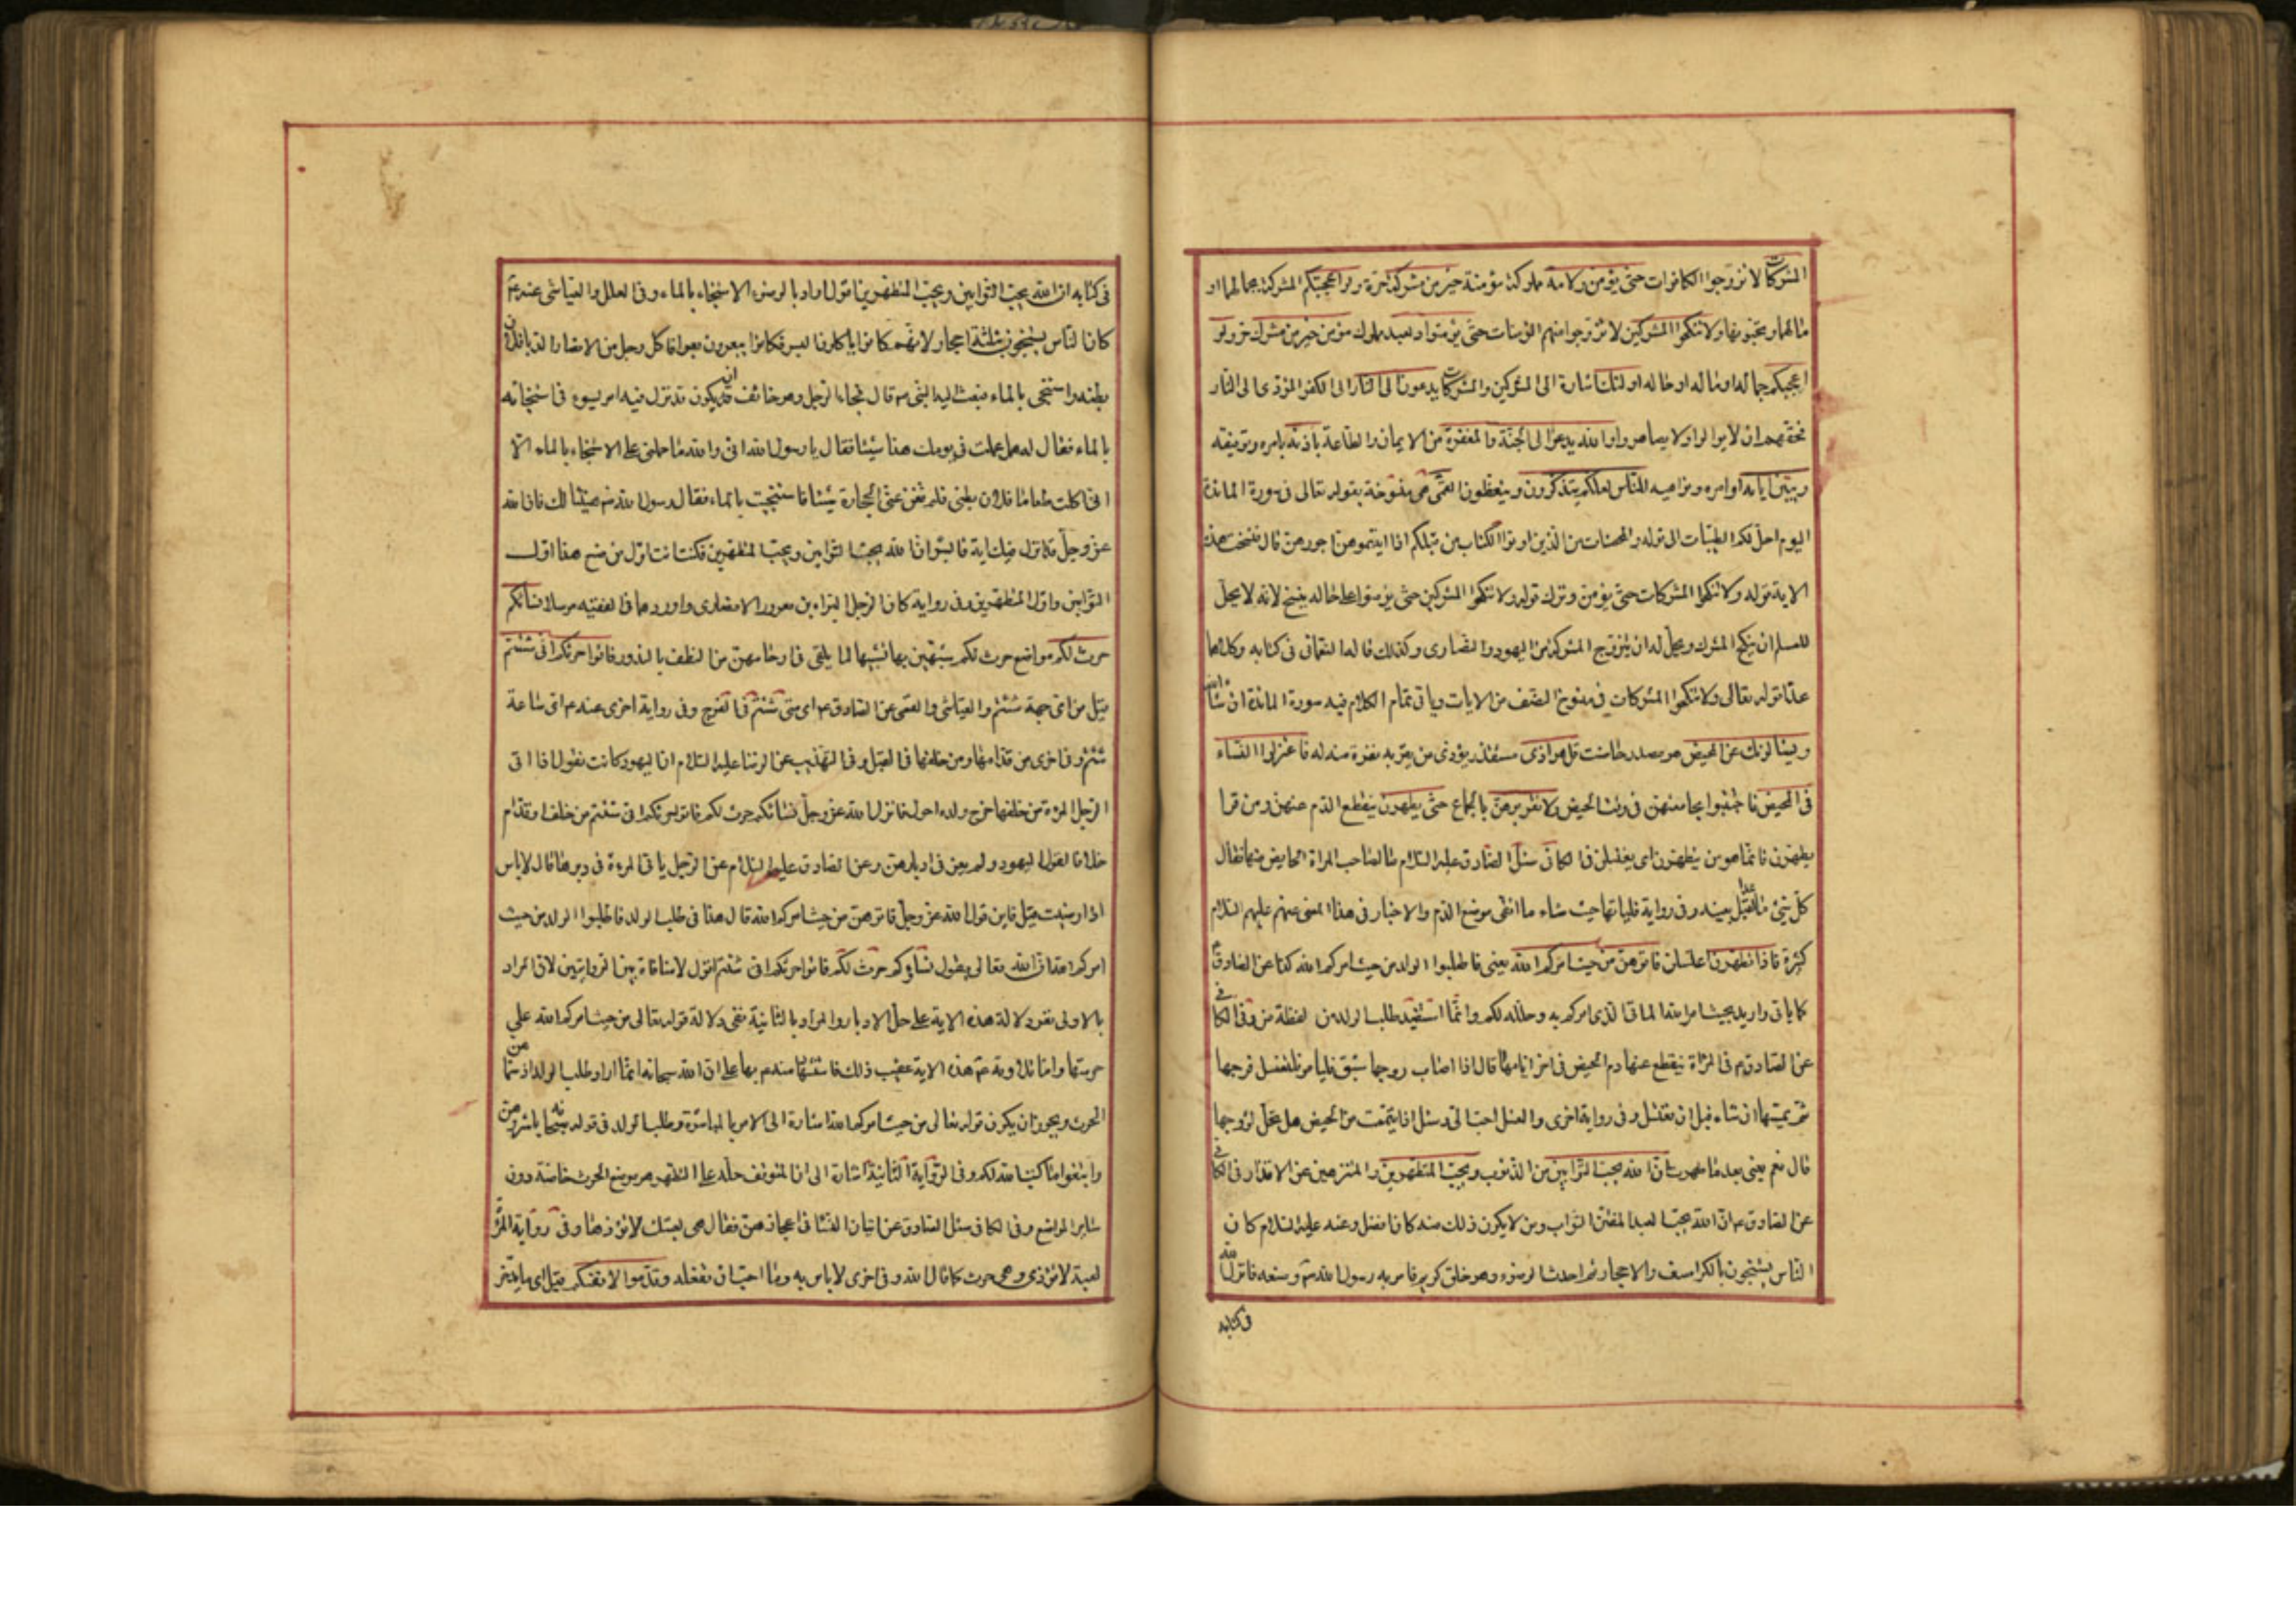 المشركات لا تزوجوا الكافرات حتى يؤمن ولامة مملوكة مؤمنة خير من مشركة حرة ولو اعجبتكم المشركة بجمالها او
مالها وتحبونها ولا تنكحوا المشركين لا تزوجوا منهم المؤمنات حتى يؤمنوا ولعبد مملوك مؤمن خير من مشرك حر ولو
اعجبكم جماله او ماله او حاله اولئك اشارة الى المشركين والمشركات يدعون الى النار الى الكفر المؤدى الى النار
فحقهم ان لا يوالوا ولا يصاهروا والله يدعوا الى الجنة والمغفرة من الايمان والطاعة باذنه بامره وتوفيقه
ويبين اياته اوامره ونواهيه للناس لعلكم يتذكرون ويتعظون القمى هى منسوخة بقوله تعالى فى سورة المائدة
اليوم احل لكم الطيبات الى قوله والمحصنات من الذين اوتوا الكتاب من قبلكم اذا اتيتموهن اجورهن قال فنسخت هذه
الاية قوله ولا تنكحوا المشركات حتى يؤمن وترك قوله ولا تنكحوا المشركين حتى يؤمنوا على حاله لم ينسخ لانه لا يحل
للمسلم ان ينكح المشرك ويحل له ان يتزوج المشركة من اليهود والنصارى وكذلك قال النعمانى فى كتابه وكلاهما
عدا قوله تعالى ولا تنكحوا المشركات فى منسوخ النصف من الايات وياتى تمام الكلام فيه سورة المائدة ان شاء الله
ويسالونك عن المحيض هو مصدر حاضت قل هو اذى مستقذر يؤذى من يقربه نفرة منه له فاعتزلوا النساء
فى المحيض فاجتنبوا مجامعتهن فى وقت الحيض ولا تقربوهن بالجماع حتى يطهرن ينقطع الدم عنهن ومن قرا
يطهرن فانما هو من يتطهرن اى يغتسلن فى الكافى سئل الصادق عليه السلام ما لصاحب المراة الحايض منها فقال
كل شئ ما عدا القبل بعينه وفى رواية فلياتها حيث شاء ما اتقى موضع الدم والاخبار فى هذا المعنى عنهم عليهم السلام
كثيرة فاذا تطهرن اغتسلن فاتوهن من حيث امركم الله يعنى فاطلبوا الولد من حيث امركم الله كذا عن الصادق ع
كما ياتى واريد بحيث امر الله الماتى الذى امركم به وحلله لكم وانما استفيد طلب الولد من لفظة من وفى الكافى
عن الصادق ع فى المراة ينقطع عنها دم الحيض فى اخر ايامها قال اذا اصاب زوجها شبق فليامرها فلتغسل فرجها
ثم يمسها ان شاء قبل ان تغتسل وفى رواية اخرى والغسل احب الى وسئل اذا تيممت من الحيض هل تحل لزوجها
قال نعم يعنى بعد ما طهرت ان الله يحب التوابين من الذنوب ويحب المتطهرين والمتنزهين عن الاقذار فى الكافى
عن الصادق ع ان الله يحب العبد المفتن التواب ومن لا يكون ذلك منه كان افضل وعنه عليه السلام كان
الناس يستنجون بالكرسف والاحجار ثم احدث الوضوء وهو خلق كريم فامر به رسول الله ص وصنعه فانزل الله
فى كتابه
فى كتابه ان الله يحب التوابين ويحب المتطهرين اقول اراد بالوضوء الاستنجاء بالماء وفى العلل والعياشى عنه ع
كان الناس يستنجون بثلثة احجار لانهم كانوا ياكلون البسر فكانوا يبعرون بعرا فاكل رجل من الانصار الدبا فلان
بطنه واستنجى بالماء فبعث اليه النبى ص قال فجاء الرجل وهو خائف ان يكون قد نزل فيه امر يسوء فى استنجائه
بالماء فقال له هل عملت فى يومك هذا شيئا فقال يا رسول الله انى والله ما حملنى على الاستنجاء بالماء الا
انى اكلت طعاما فلان بطنى فلم تغن عنى الحجارة شيئا فاستنجيت بالماء فقال رسول الله ص هنيئا لك فان الله
عز وجل قد انزل فيك اية فابشر ان الله يحب التوابين ويحب المتطهرين فكنت انت اول من صنع هذا اول
التوابين واول المتطهرين وفى رواية كان الرجل البراء بن معرور الانصارى واوردها فى الفقيه مرسلا نسائكم
حرث لكم مواضع حرث لكم شبههن بها تشبيها لما يلقى فى ارحامهن من النطف بالبذور فاتوا حرثكم انى شئتم
قيل من اى جهة شئتم والعياشى والقمى عن الصادق ع اى متى شئتم فى الفرج وفى رواية اخرى عنه ع اى ساعة
شئتم وفى اخرى من قدامها ومن خلفها فى القبل وفى التهذيب عن الرضا عليه السلام ان اليهود كانت تقول اذا اتى
الرجل المرءة من خلفها خرج ولده احول فانزل الله عز وجل نسائكم حرث لكم فاتوا حرثكم انى شئتم من خلف او قدام
خلافا لقول اليهود ولم يعن فى ادبارهن وعن الصادق عليه السلام عن الرجل ياتى المرءة فى دبرها قال لا باس
اذا رضيت قيل فاين قول الله عز وجل فاتوهن من حيث امركم الله قال هذا فى طلب الولد فاطلبوا الولد من حيث
امركم الله ان الله تعالى يقول نساؤكم حرث لكم فاتوا حرثكم انى شئتم اقول لا منافاة بين الروايتين لان المراد
بالاولى نفى دلالة هذه الاية على حل الادبار والمراد بالثانية نفى دلالة قوله تعالى من حيث امركم الله على
حرمتها واما تلاوته ع هذه الاية عقيب ذلك فاستشهاد منه ع بها على ان الله سبحانه انما اراد طلب الولد اذ سماهن
الحرث ويجوز ان يكون قوله تعالى من حيث امركم الله اشارة الى الامر بالمباشرة وطلب الولد فى قوله سبحانه باشروهن
وابتغوا ما كتب الله لكم وفى الرواية الثانية اشارة الى ان المتوقف حله على التطهر هو موضع الحرث خاصة دون
سائر المواضع وفى الكافى سئل الصادق عن اتيان النساء فى اعجازهن فقال هى لعبتك لا تؤذها وفى رواية المرءة
لعبة لا تؤذى وهى حرث كما قال الله وفى اخرى لا باس به وما احب ان تفعله وقدموا لانفسكم قيل اى ما يدخر